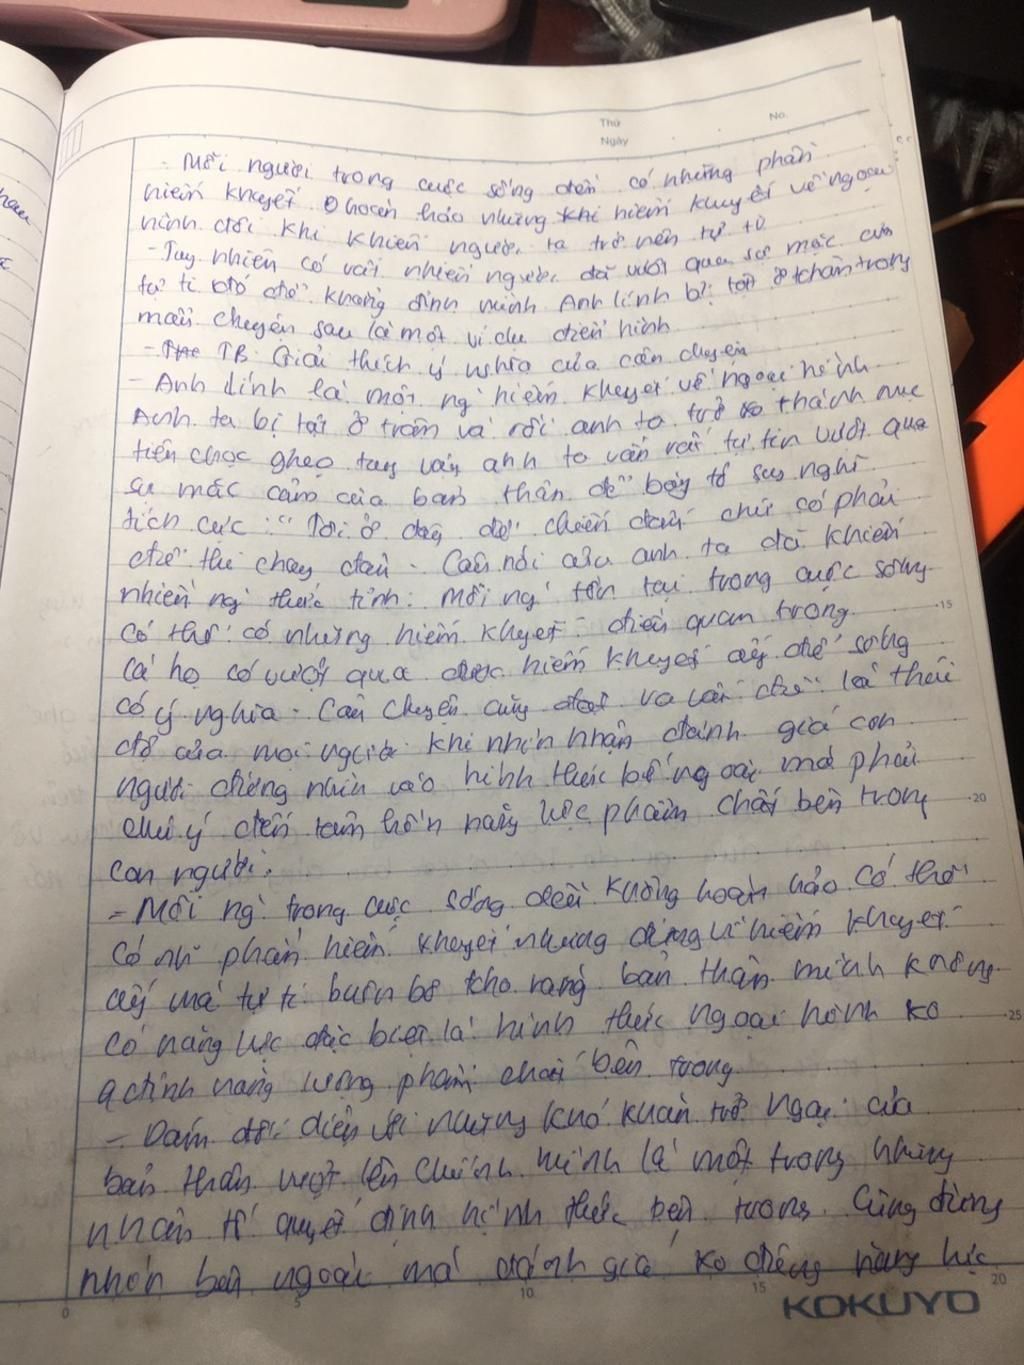 Thứ No.
Ngày
- Mỗi người trong cuộc sống đều có những phần
hiếm khuyết ko hoàn hảo nhưng khi hiếm khuyết về ngoại
hình đôi khi khiến người ta trở nên tự ti
- Tuy nhiên có rất nhiều người đã vượt qua sự mặc cảm
tự ti đó để khẳng định mình. Anh lính bị tật ở chân trong
mẩu chuyện sau là một ví dụ điển hình
- TB: Giải thích ý nghĩa của câu chuyện
- Anh lính là một ng' hiếm khuyết về ngoại hình
Anh ta bị tật ở chân và rồi anh ta trở thành mục
tiêu chọc ghẹo tuy vậy anh ta vẫn rất tự tin vượt qua
sự mặc cảm của bản thân để bày tỏ suy nghĩ
tích cực: "Tôi ở đây để chiến đấu chứ có phải
để thi chạy đâu. Câu nói của anh ta đã khiến
nhiều ng' thức tỉnh: Mỗi ng' tồn tại trong cuộc sống
có thể có những hiếm khuyết điều quan trọng
là họ có vượt qua được hiếm khuyết ấy để sống
có ý nghĩa. Câu chuyện cũng đặt ra vấn đề là thái
độ của mọi người khi nhìn nhận đánh giá con
người đừng nhìn vào hình thức bên ngoài mà phải
chú ý đến tâm hồn năng lực phẩm chất bên trong
con người.
- Mỗi ng' trong cuộc sống đều không hoàn hảo có thể
có nh~ phần hiếm khuyết nhưng đừng vì hiếm khuyết
ấy mà tự ti buồn bã cho rằng bản thân mình không
có năng lực đặc biệt là hình thức ngoại hình ko
qđịnh năng lượng phẩm chất bên trong
- Dám đối diện với những khó khăn trở ngại của
bản thân vượt lên chính mình là một trong những
nhân tố quyết định hình thức bên trong. Cũng đừng
nhìn bên ngoài mà đánh giá ko đúng năng lực
15
20
25
0 5 10 15 20
KOKUYO